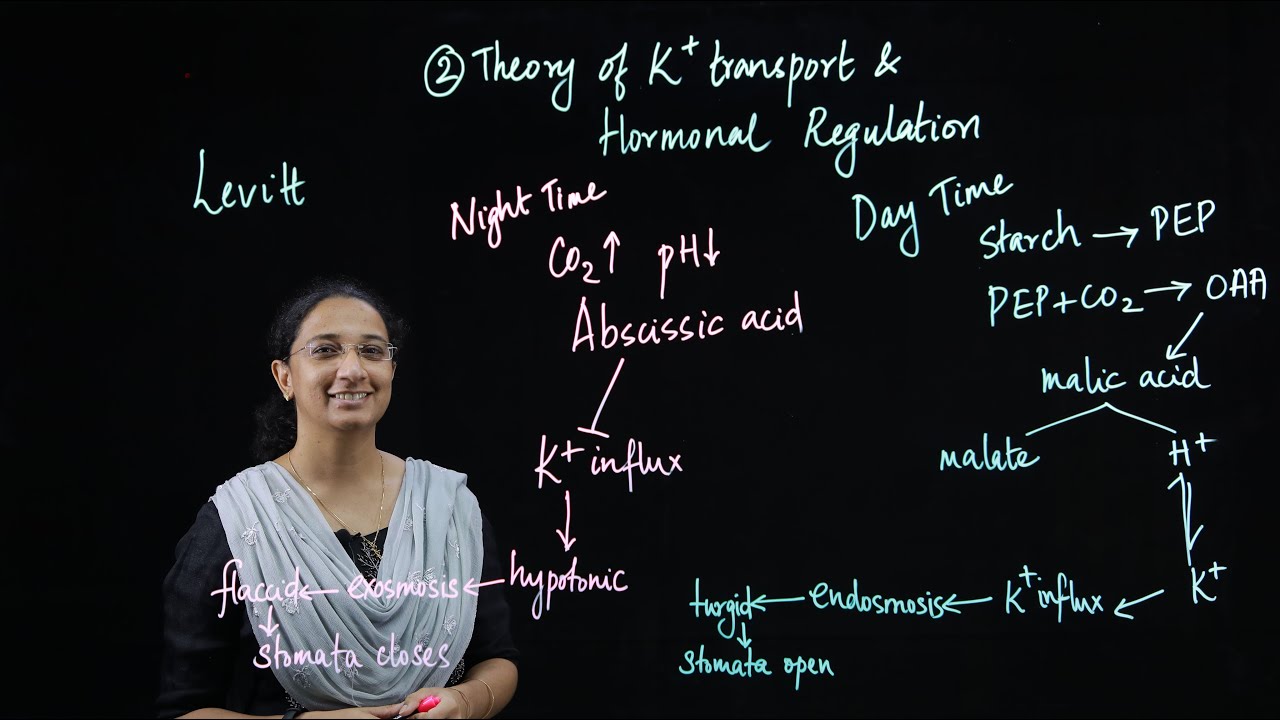 ② Theory of K⁺ transport &
Hormonal Regulation
Levitt
Night Time
CO₂↑ pH↓
Abscissic acid
K⁺ influx
↓
hypotonic
flaccid ← exosmosis ←
↓
stomata closes
Day Time
Starch → PEP
PEP+CO₂ → OAA
malic acid
malate H⁺
K⁺
turgid ← endosmosis ← K⁺ influx ←
↓
stomata open